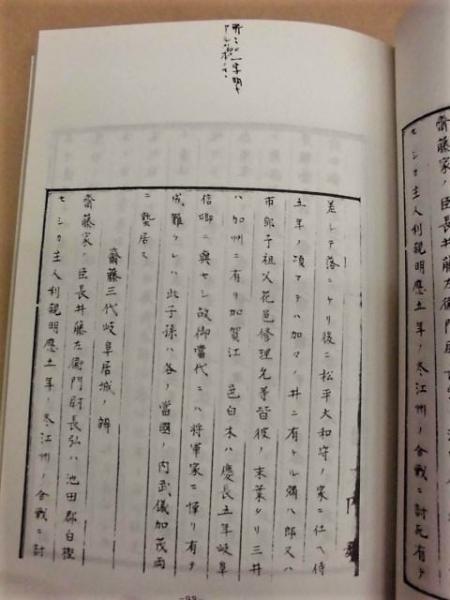 差シテ落ニケリ後ニ松平大和守ノ家ニ仕ヘ侍
五年ノ頃マテハ加々ノ井ニ有ケル弥八郎又ハ
市郎子祖父花邑修理允等皆彼ノ末葉ナリ三井
ハ加州ニ有リ加賀江 邑白木ハ慶長五年岐阜
信卿ニ與セシ故御當代ニハ将軍家ニ憚リ有テ
成難ケレハ此子孫ハ各々當國ノ内武儀加茂両
ニ蟄居ス
齋藤三代岐阜居城ノ辨
齋藤家ノ臣長井藤左衛門尉長弘ハ池田郡白樫
セシカ主人利親明應五年ノ冬江州ノ合戦ニ討
齋藤家ノ臣長井藤左
セシカ主人利親明應五年ノ冬江州ノ合戦ニ討死有テ